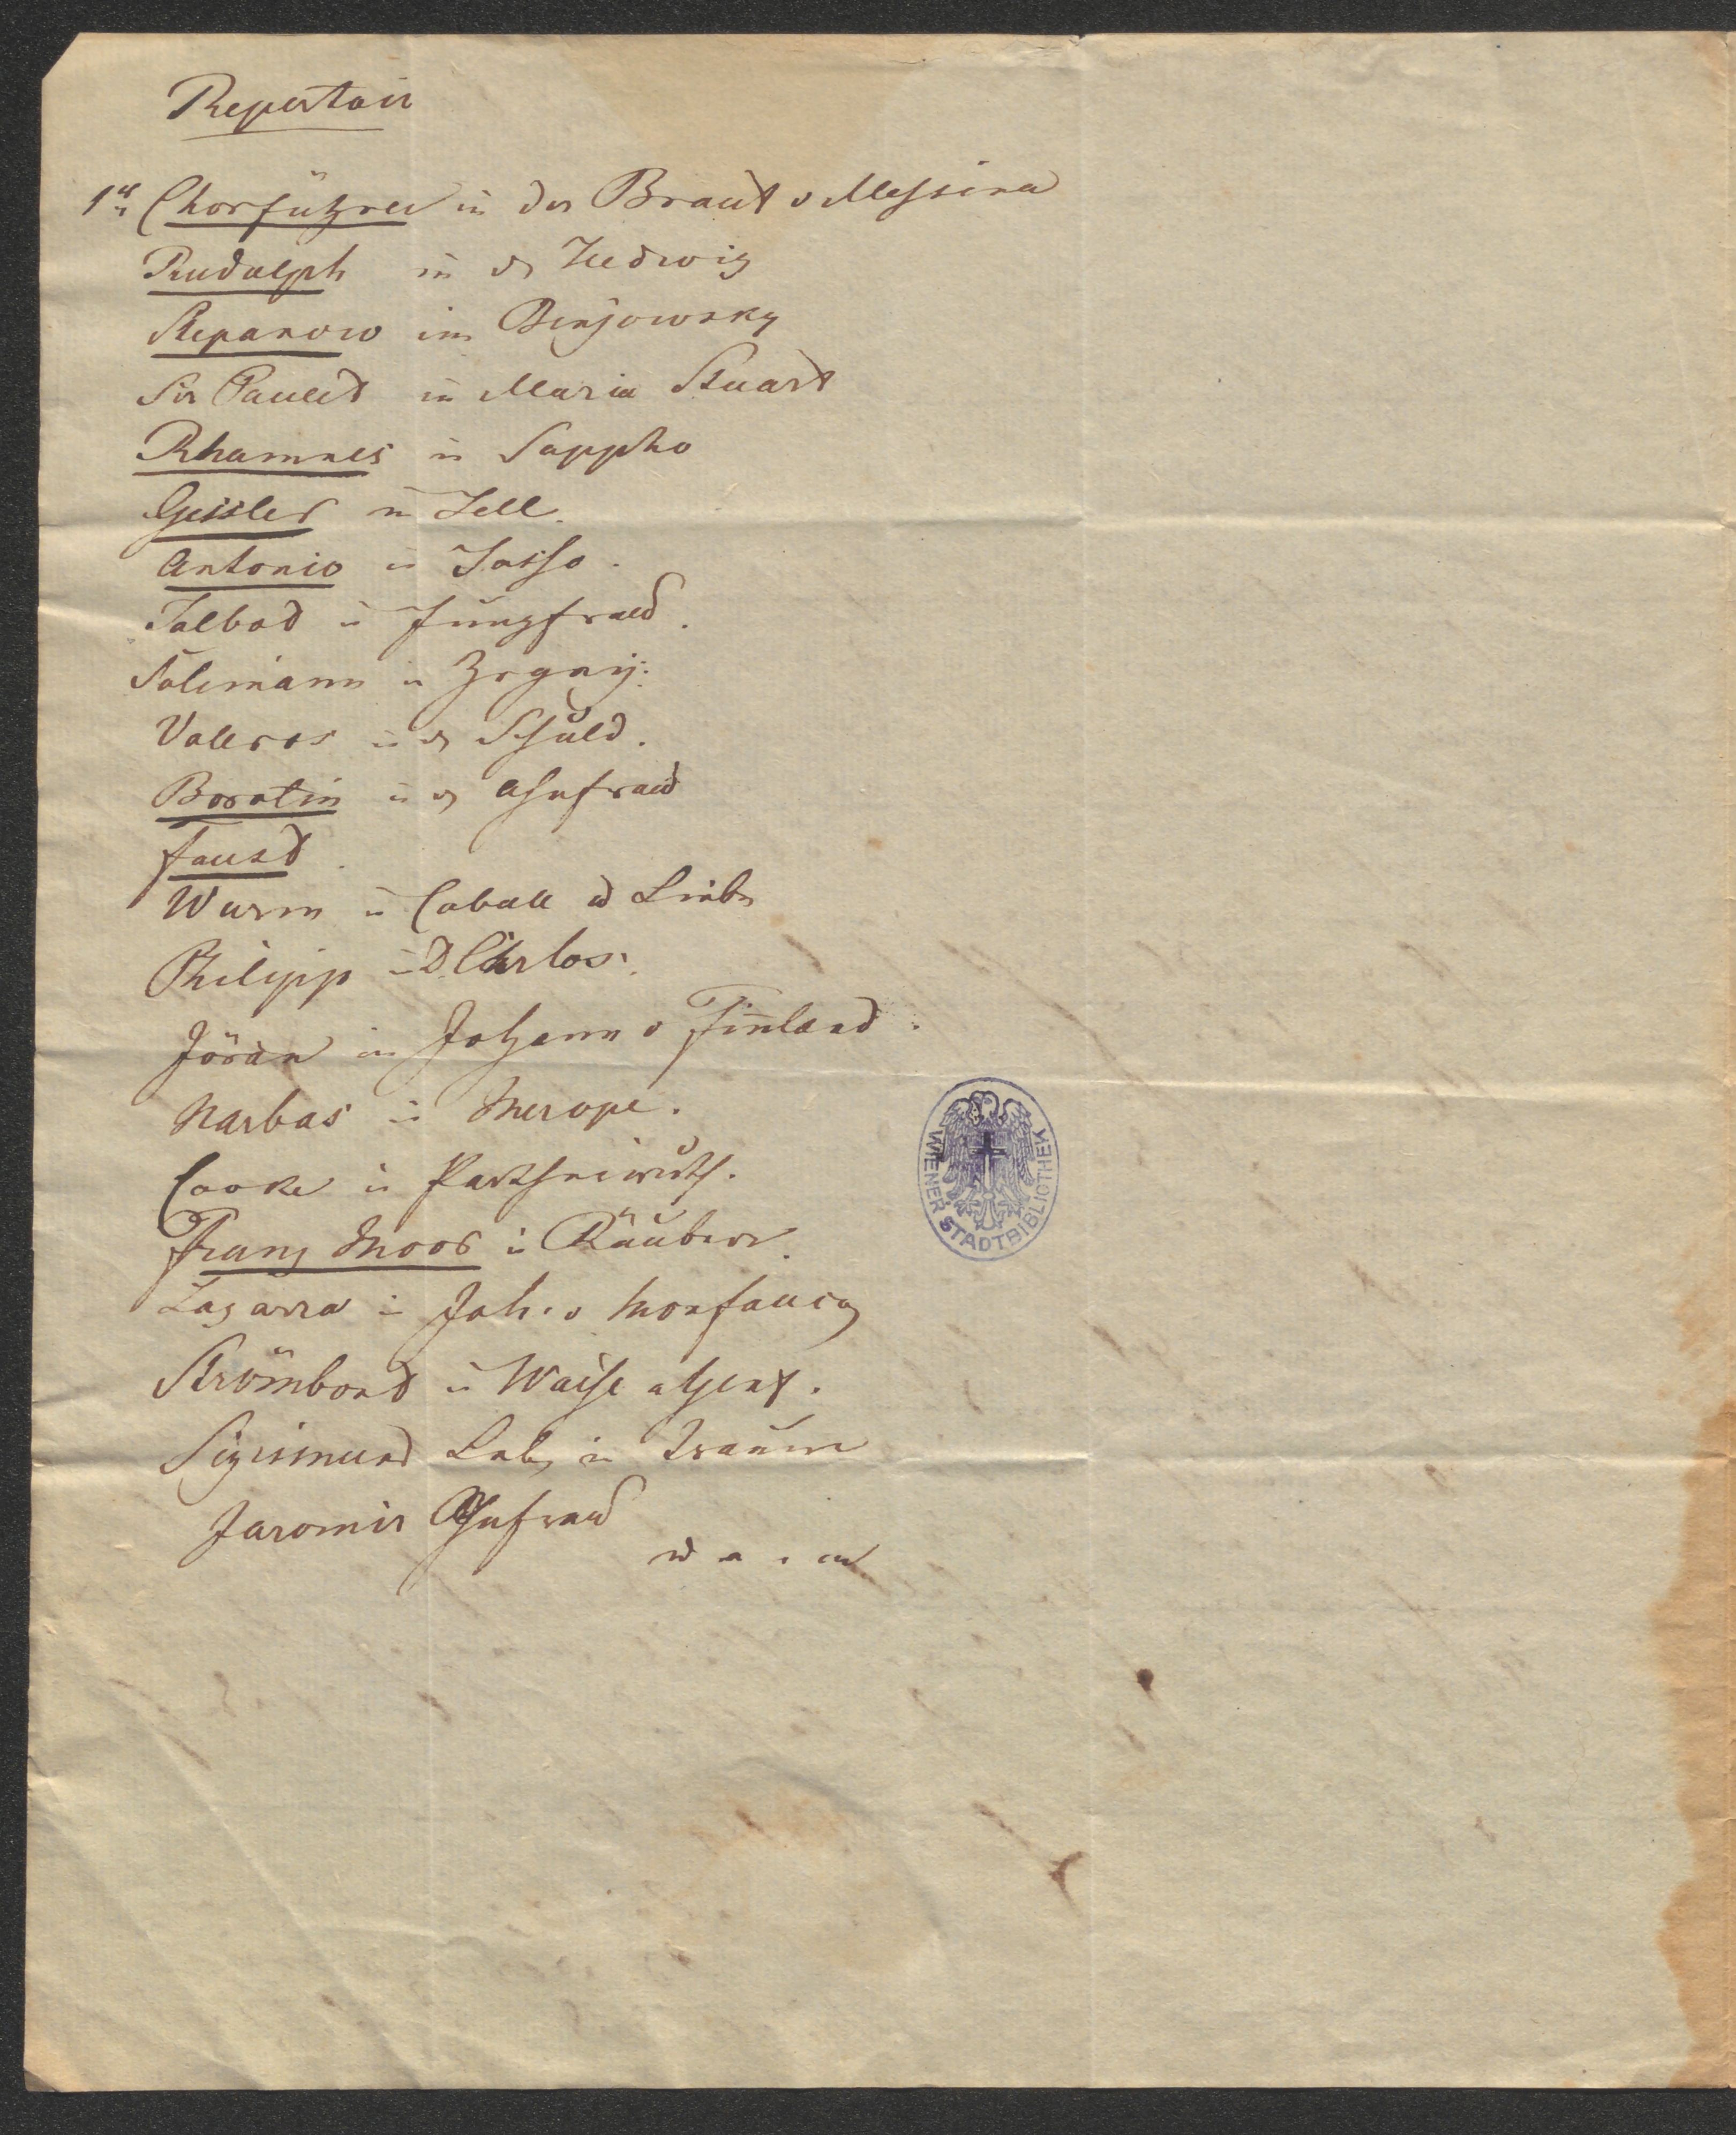 Repertoir
1r Chorführer in der Braut v Messina
Rudolph in dr Hedwig
Stepanow im Benjowsky
Sir Paulet in Maria Stuart
Rhamnes in Sappho
Geissler in Tell.
Antonio in Tasso.
Talbod in Jungfrau.
Solimann in Zrgny:
Valeros in dr Schuld.
Borotin in dr Ahnfrau
Faust.
Wurm in Cabale u Liebe
Philipp in D. Carlos.
Jöran in Johann v Finnland.
Narbas in Merope.
Cooke in Partheiwuth.
Franz Moor in Räuber.
Lazarra in Joh. v Monfaucon
Strömbord in Waise a Genf.
Sigismund Leben in Traum
Jaromir Ahnfrau
u a. m
WIENER STADTBIBLIOTHEK